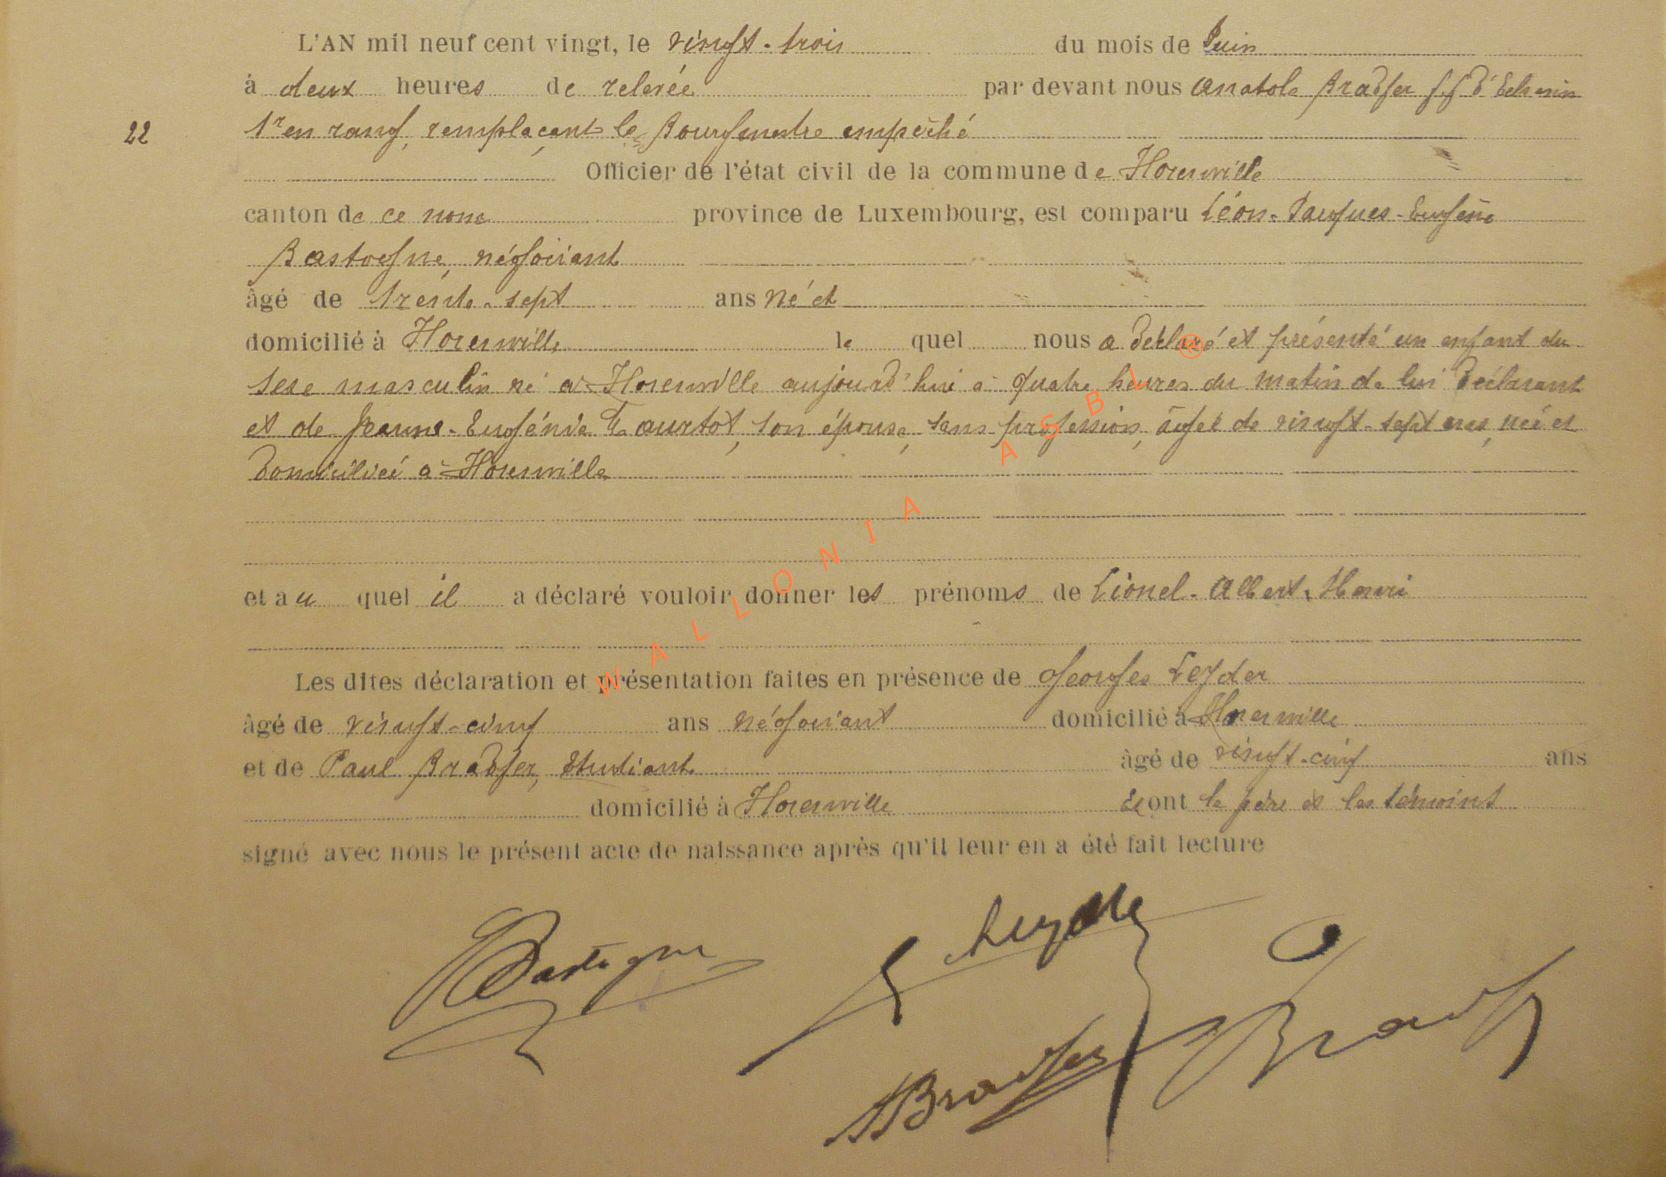 L'AN mil neuf cent vingt, le vingt-trois du mois de Juin
à deux heures de relevée par devant nous Anatole Bradfer ff d'Echevin
22
1er en rang, remplaçant le Bourgmestre empêché
Officier de l'état civil de la commune de Florenville
canton de ce nom province de Luxembourg, est comparu Léon-Jacques-Eugène
Bastogne, négociant
âgé de trente-sept ans né et
domicilié à Florenville le quel nous a déclaré et présenté un enfant du
sexe masculin né à Florenville aujourd'hui à quatre heures du matin de lui déclarant
et de Jeanne-Eugénie Taurtot, son épouse, sans profession, âgée de vingt-sept ans, née et
domiciliée à Florenville
et au quel il a déclaré vouloir donner les prénoms de Lionel-Albert-Henri
Les dites déclaration et présentation faites en présence de Georges Leyder
âgé de vingt-cinq ans négociant domicilié à Florenville
et de Paul Bradfer, Etudiant âgé de vingt-cinq ans
domicilié à Florenville et ont le père et les témoins
signé avec nous le présent acte de naissance après qu'il leur en a été fait lecture
Bastogne
ABradfer
Bradfer
WALLONIA ASBL ®